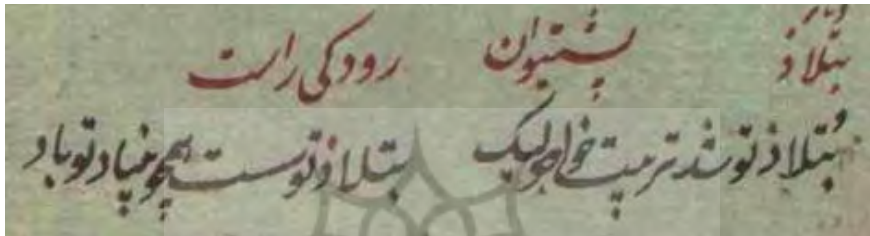 بتلاذ پشتیوان رودکی راست
بتلاذ تو شد تربیت خواجو لیک بتلاذ تو سست همچو بنیاد تو باد